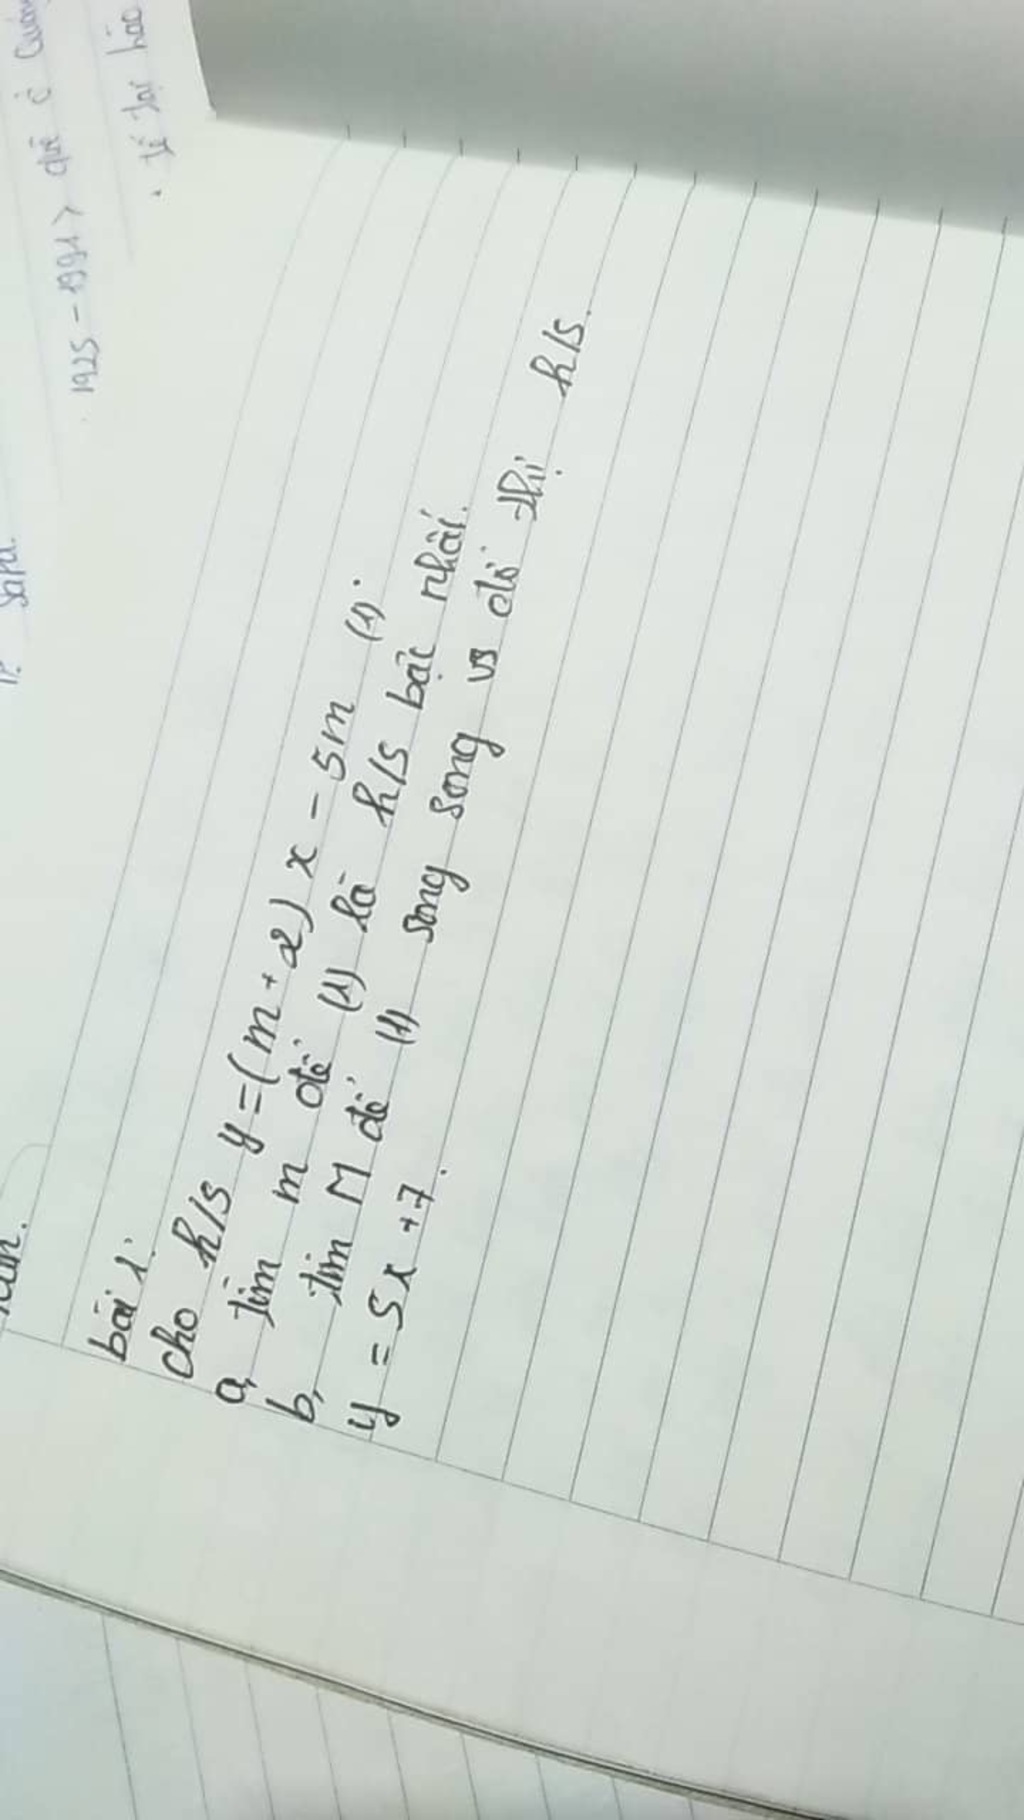 1925 - 1991 > quê ở
bài 1:
cho h/s y = (m + 2) x - 5m (1).
a, tìm m để (1) là h/s bậc nhất.
b, tìm M để (1) song song vs đồ thị h/s.
y = 5x + 7.